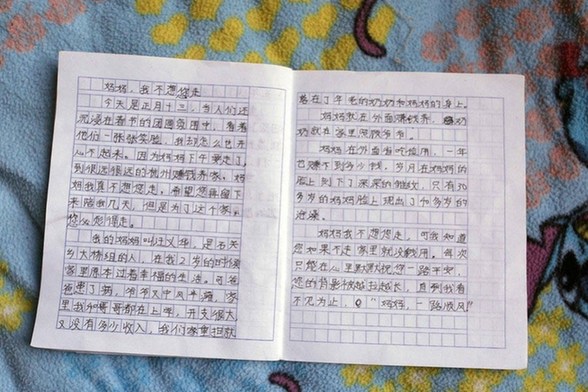 妈妈，我不想您走
今天是正月十三，当人们还
沉浸在春节的团圆氛围中，看着
他们一张张笑脸，我却怎么也开
心不起来。因为妈妈下午要走了，
到很远很远的杭州赚钱养家。妈
妈我真不想您走，希望您再留下
来陪我几天，但是为了这个家，
您必须得走。
我的妈妈叫汪义华，是石关
乡大桥组的人，在我2岁的时候
家里原本过着幸福的生活。可爸
爸患了病，爷爷又中风半瘫，家
里我和哥哥都在上学，开支很大
又没有多少收入，我们家重担就
落在了年老的奶奶和妈妈的身上。
妈妈就在外面赚钱养家，奶
奶就在家里照顾爷爷。
妈妈在外面省吃俭用，一年
也赚不到多少钱，岁月在妈妈的
脸上刻下了深深的皱纹，只有30
多岁的妈妈脸上现出了40多岁的
沧桑。
妈妈我不想您走，可我知道
您如果不走家里就没钱用，每次
只能在心里默默祝您一路平安，
您的背影被越拉越长，直到没有
不见为止，“妈妈，一路顺风”